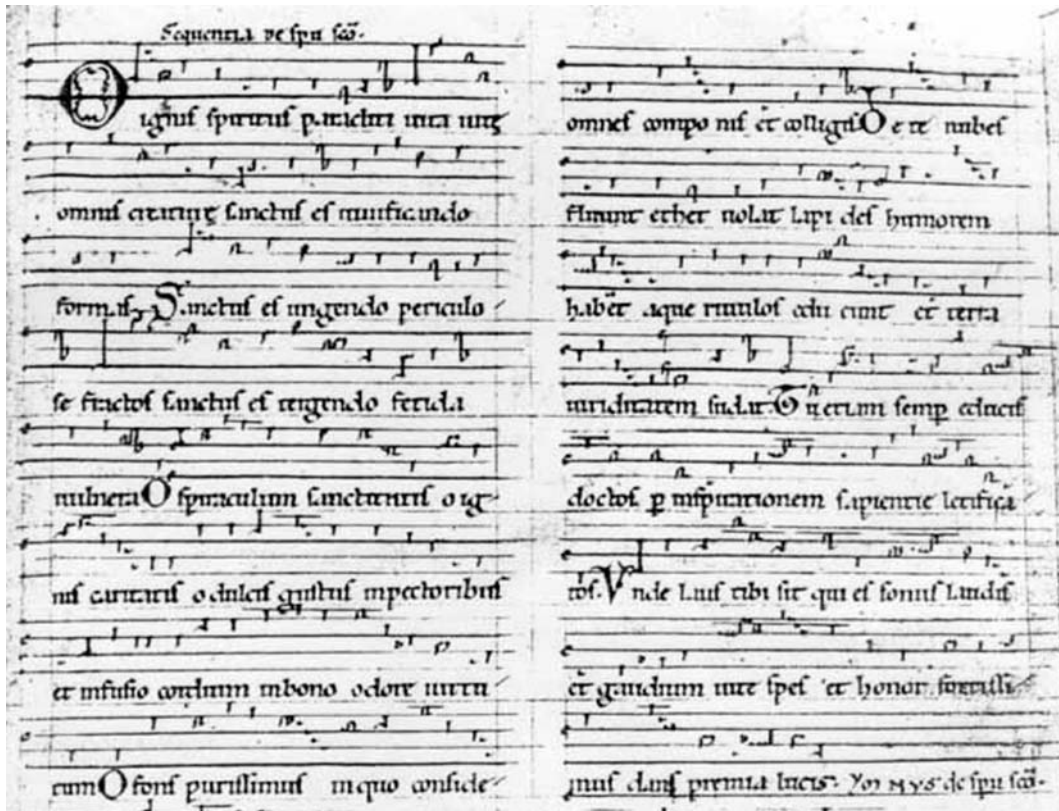 Sequentia de spu sco.
O ignis spiritus paracliti uita uite
omnis creature sanctus es uiuificando
formas. Sanctus es ungendo periculo
se fractos sanctus es tergendo fetida
uulnera O spiraculum sanctitatis o ig
nis caritatis o dulcis gustus in pectoribus
et infusio cordium in bono odore uirtu
tum O fons purissimus in quo conside
omnes componis et colligis O e te nubes
fluunt ether uolat lapides humorem
habent aque riuulos educunt et terra
uiriditatem sudat. Tu etiam semp educis
doctos p inspirationem sapientie letifica
tos. Unde laus tibi sit qui es sonus laudis
et gaudium uite spes et honor fortissi
mus dans premia lucis. Ymnus de spu sco.